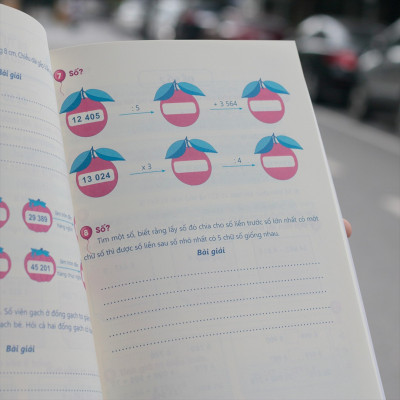 8 cm, Chiều dài
Bài giải
29 385
45 201
Số viên gạch ở đống gạch
gạch bé. Hỏi cả hai đống gạch
Bài giải
7 Số?
12 405 : 5 + 3 564
13 024 x 3 : 4
8 Số?
Tìm một số, biết rằng lấy số đó chia cho số liền trước số lớn nhất có một
chữ số thì được số liền sau số nhỏ nhất có 5 chữ số giống nhau.
Bài giải